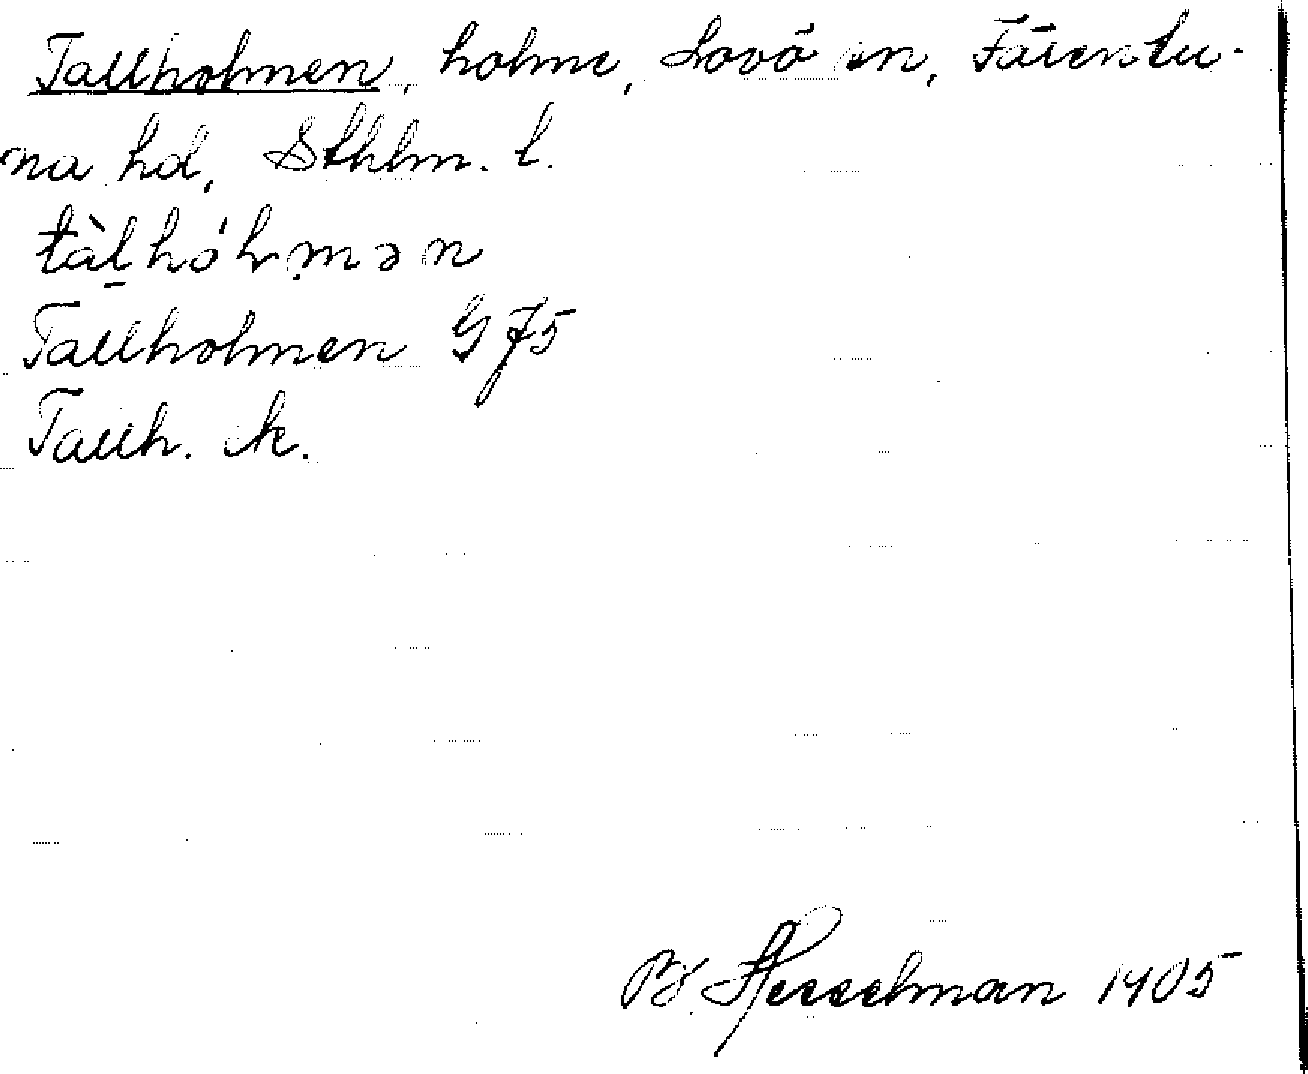 Tallholmen, holme, Lovö sn, Färentu-
na hd, Sthlm. l.
tàl̠hóLmən
Tallholmen G 75
Tallh. ek.
B. Hesselman 1905